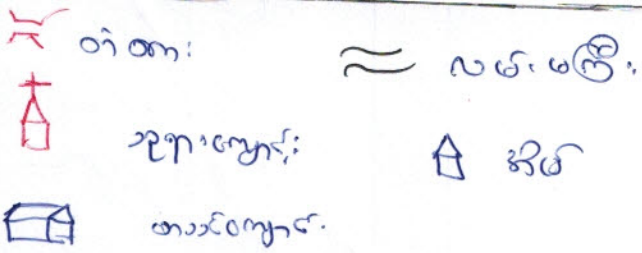 တံတား
လမ်းမကြီး
ဘုရားကျောင်း
အိမ်
စာသင်ကျောင်း